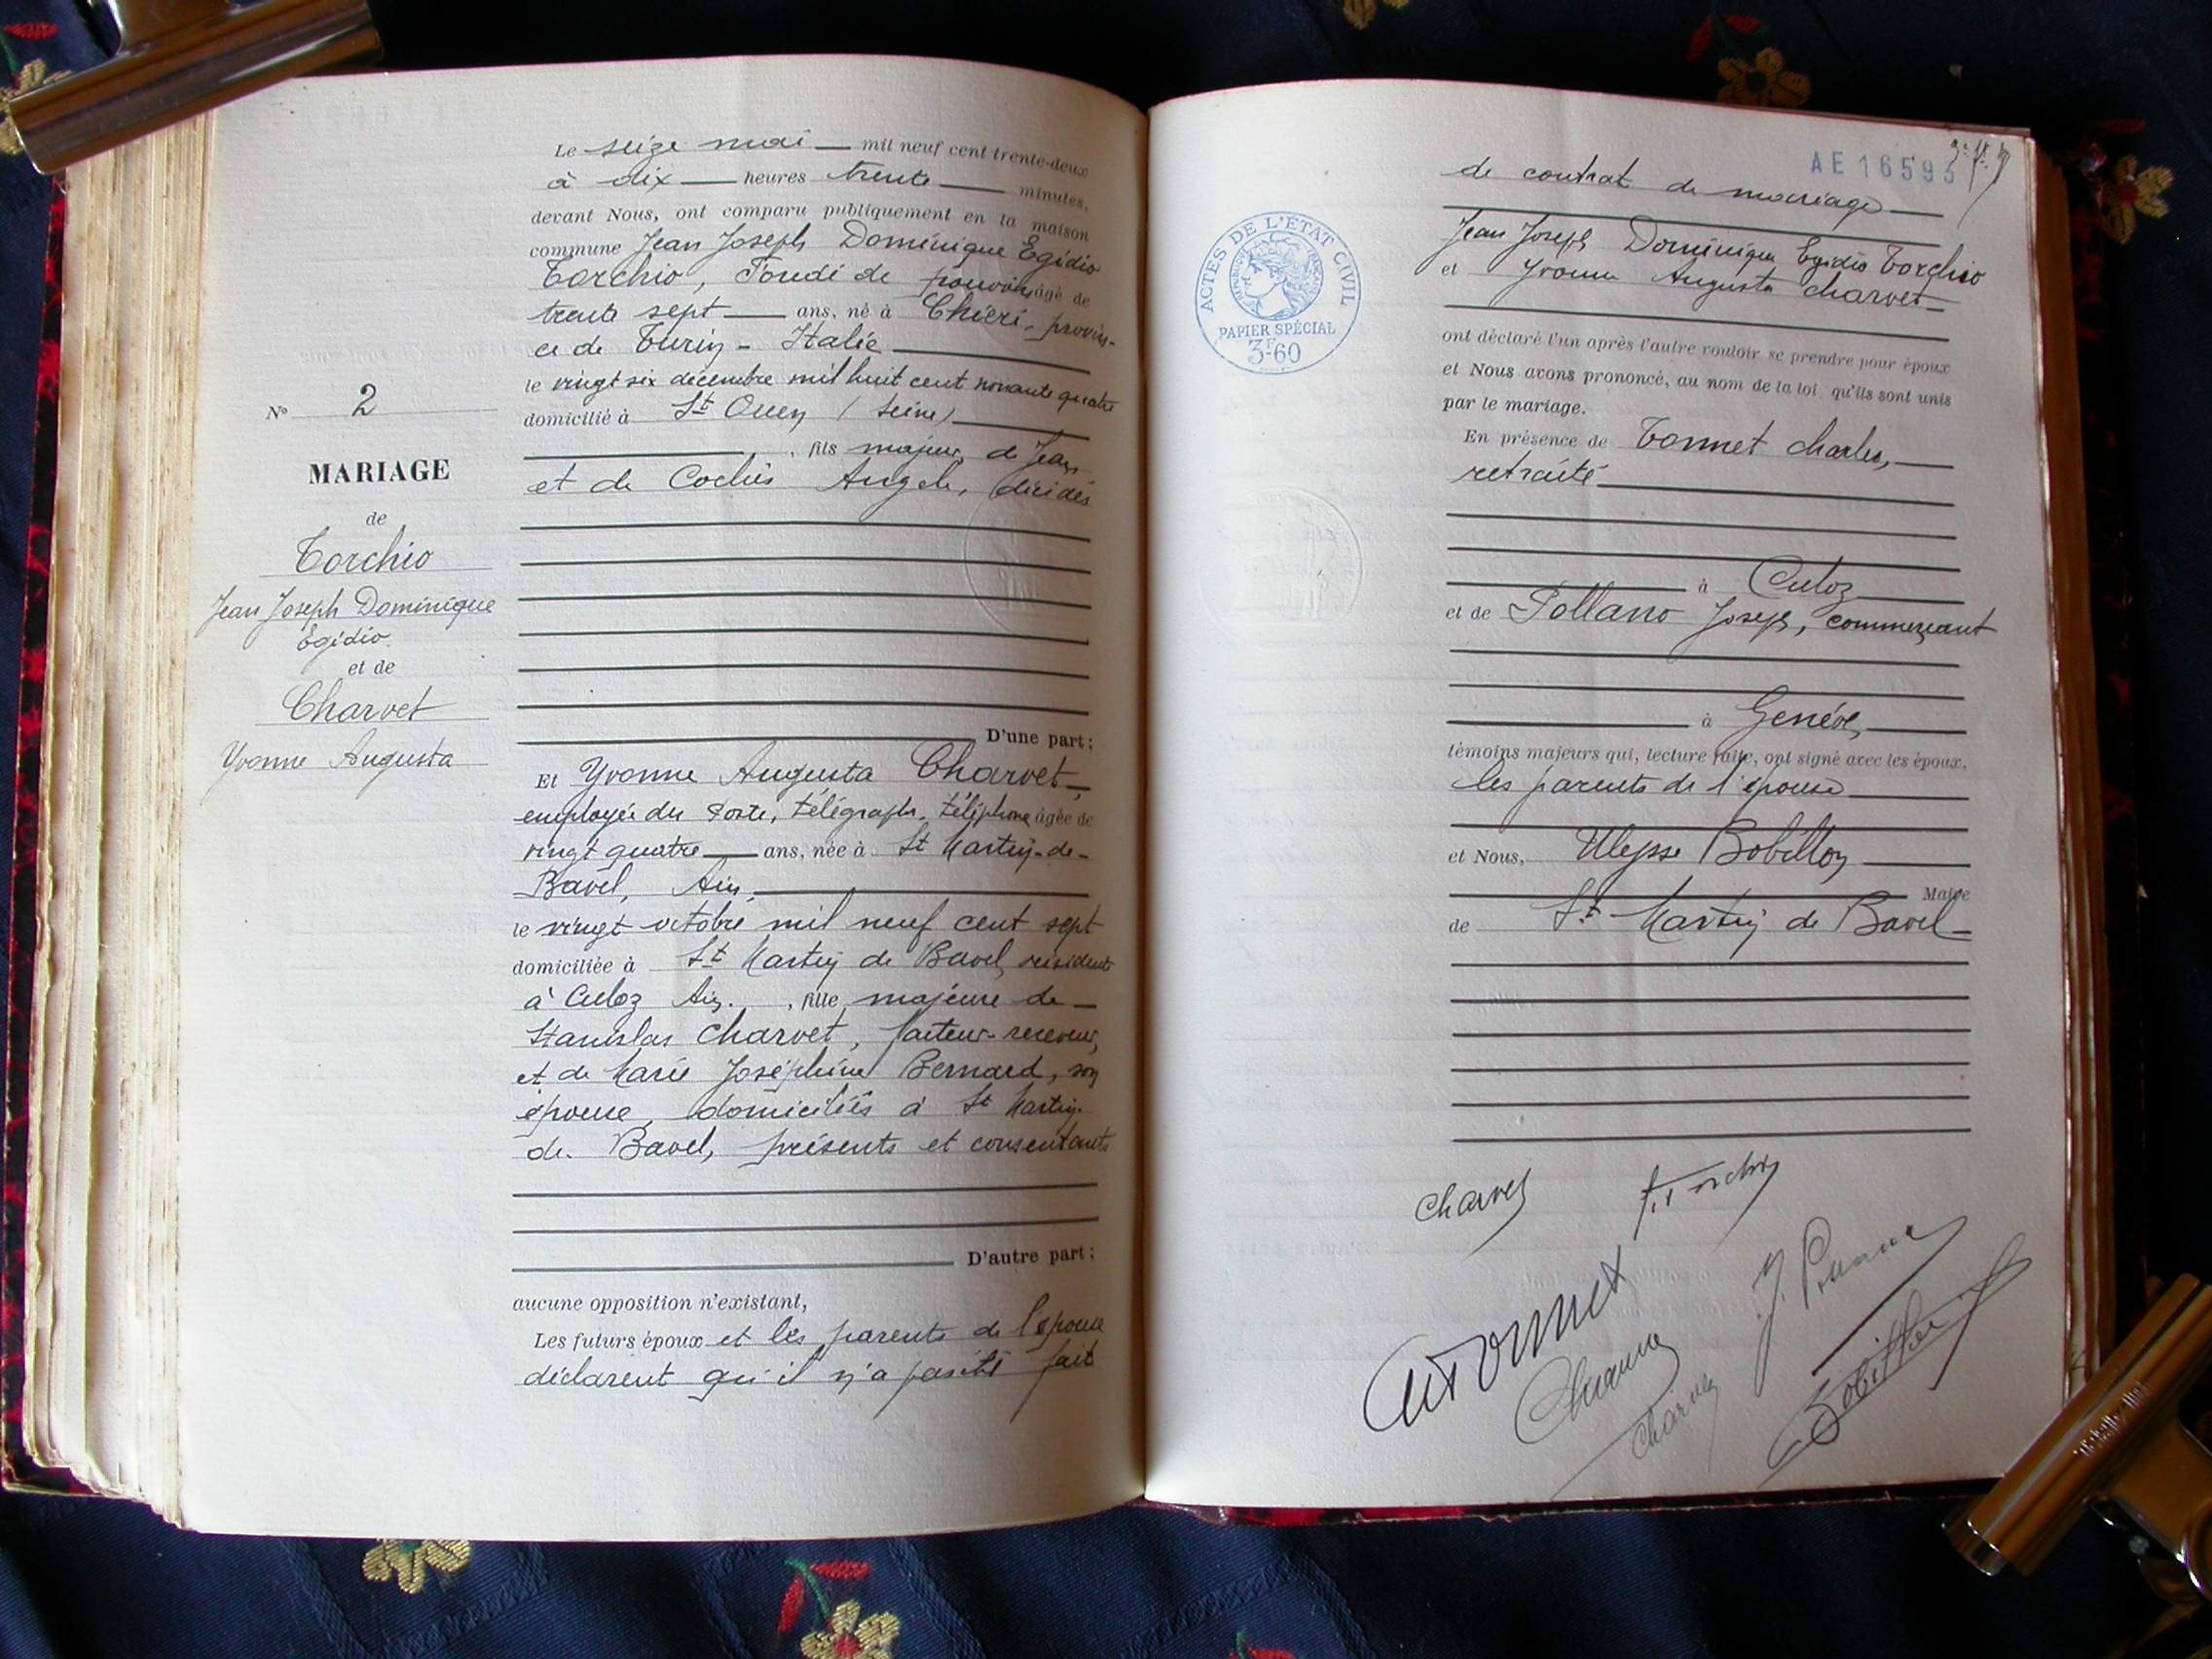 Le seize mai mil neuf cent trente-deux
à dix heures trente minutes,
devant Nous, ont comparu publiquement en la maison
commune Jean Joseph Dominique Egidio
Torchio, Fondé de pouvoir, âgé de
trente sept ans, né à Chieri, provin-
ce de Turin - Italie
le vingt six décembre mil huit cent nonante quatre
domicilié à St Ouen (Seine)
, fils majeur de Jean
et de Cochis Angele, décédés
D'une part;
N° 2
MARIAGE
de
Torchio
Jean Joseph Dominique
Egidio.
et de
Charvet
Yvonne Augusta
Et Yvonne Augusta Charvet,
employée des Poste, télégraphe, téléphone âgée de
vingt quatre ans, née à St Martin-de-
Bavel, Ain,
le vingt octobre mil neuf cent sept
domiciliée à St Martin de Bavel, résidente
à Culoz Ain. , fille majeure de
Stanislas Charvet, facteur-receveur,
et de Marie Joséphine Bernard, son
épouse, domiciliés à St Martin-
de Bavel, présents et consentants
D'autre part;
aucune opposition n'existant,
Les futurs époux et les parents de l'épouse
déclarent qu'il n'a pas été fait
AE 16595
de contrat de mariage
ACTES DE L'ÉTAT CIVIL
RÉPUBLIQUE FRANÇAISE
PAPIER SPÉCIAL
3F60
Jean Joseph Dominique Egidio Torchio
et Yvonne Augusta Charvet
ont déclaré l'un après l'autre vouloir se prendre pour époux
et Nous avons prononcé, au nom de la loi, qu'ils sont unis
par le mariage.
En présence de Tonnet Charles,
retraité
à Culoz
et de Pollano Joseph, commerçant
à Genève,
témoins majeurs qui, lecture faite, ont signé avec les époux,
les parents de l'épouse
et Nous, Ulysse Bobillon
Maire
de St Martin de Bavel
Charvet
Torchio
Tonnet
J. Pollano
Charvet
Bobillon